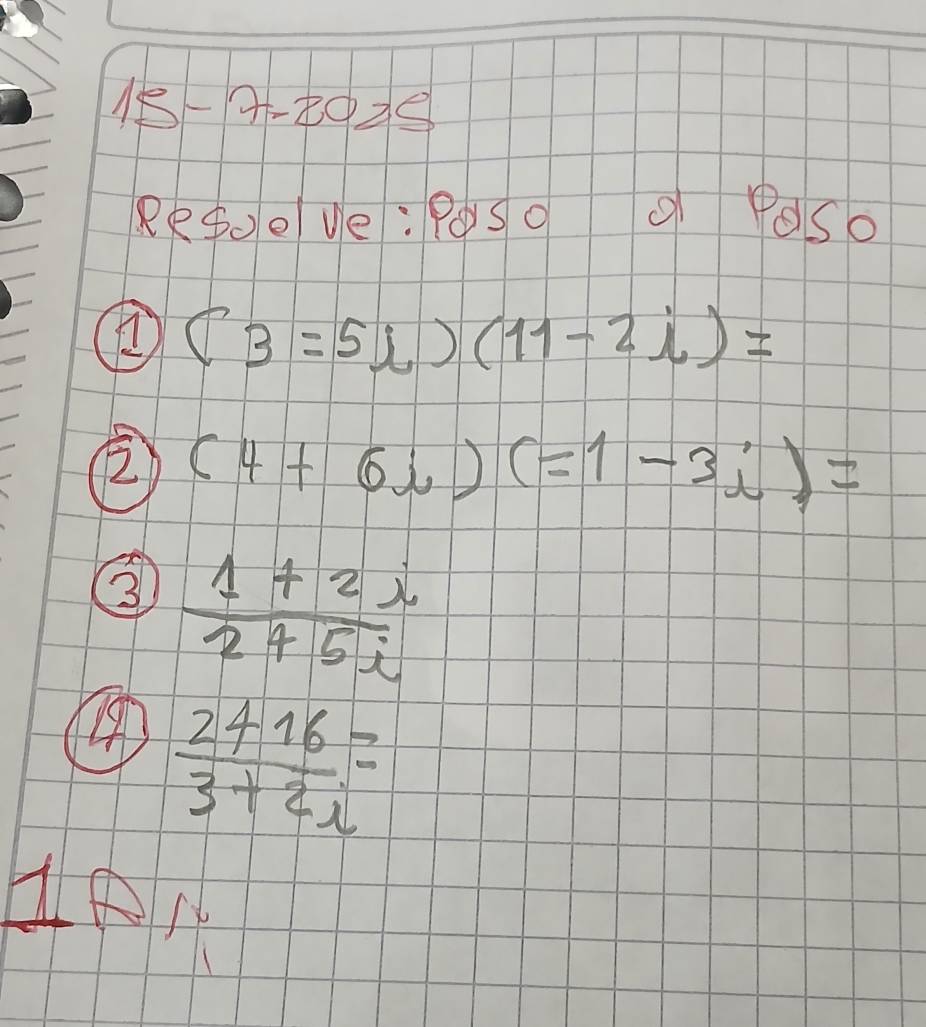 15-7-2025
Resuelve: Paso a Paso
① (3=5i)(11-2i)=
② (4+6i)(=1-3i)=
③ 1+2i
2+5i
④ 2+16=
3+2i